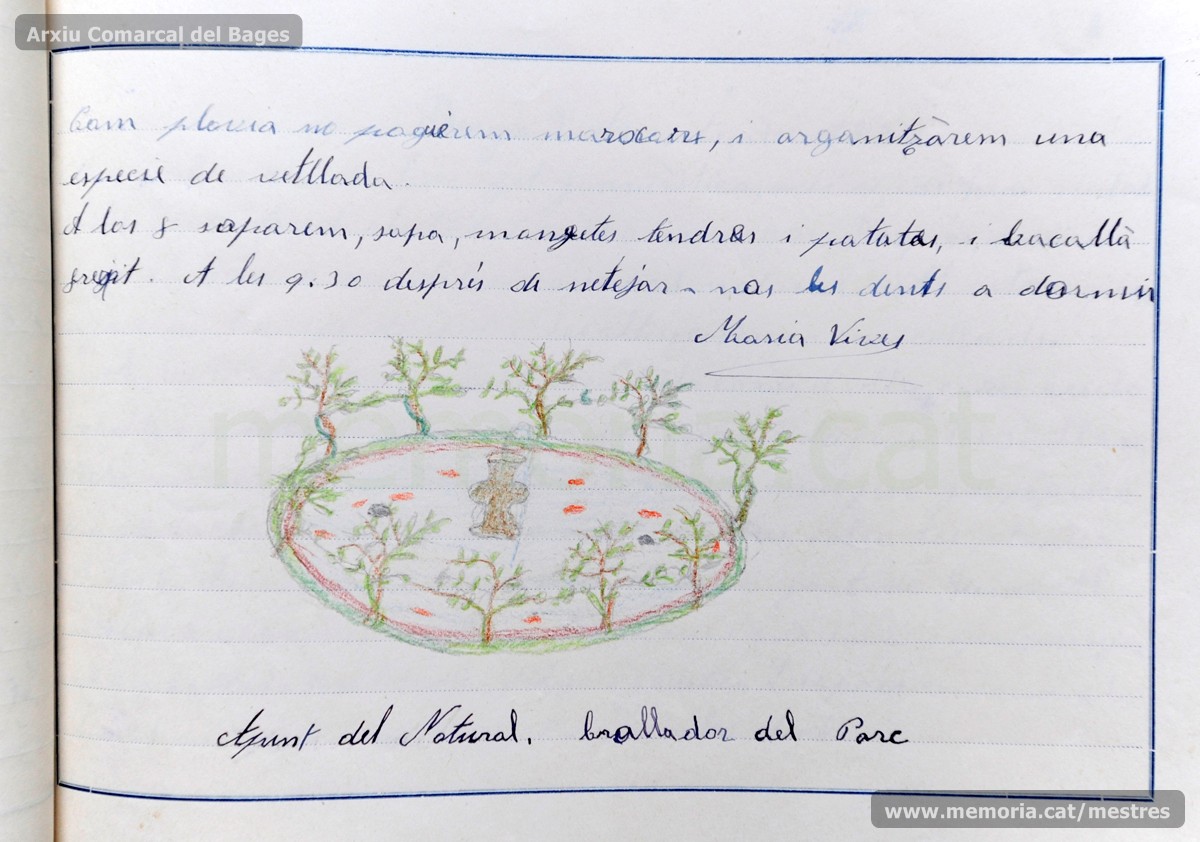 Arxiu Comarcal del Bages
Com plovia no poguérem marxar, i organitzàrem una
especie de vetllada.
A las 8 soparem, sopa, mongetes tendras i patatas, i bacallà
fregit. A les 9.30 després de netejar-nos les dents a dormir
Maria Vives
memoria.cat
Apunt del Natural. Brollador del Parc
www.memoria.cat/mestres